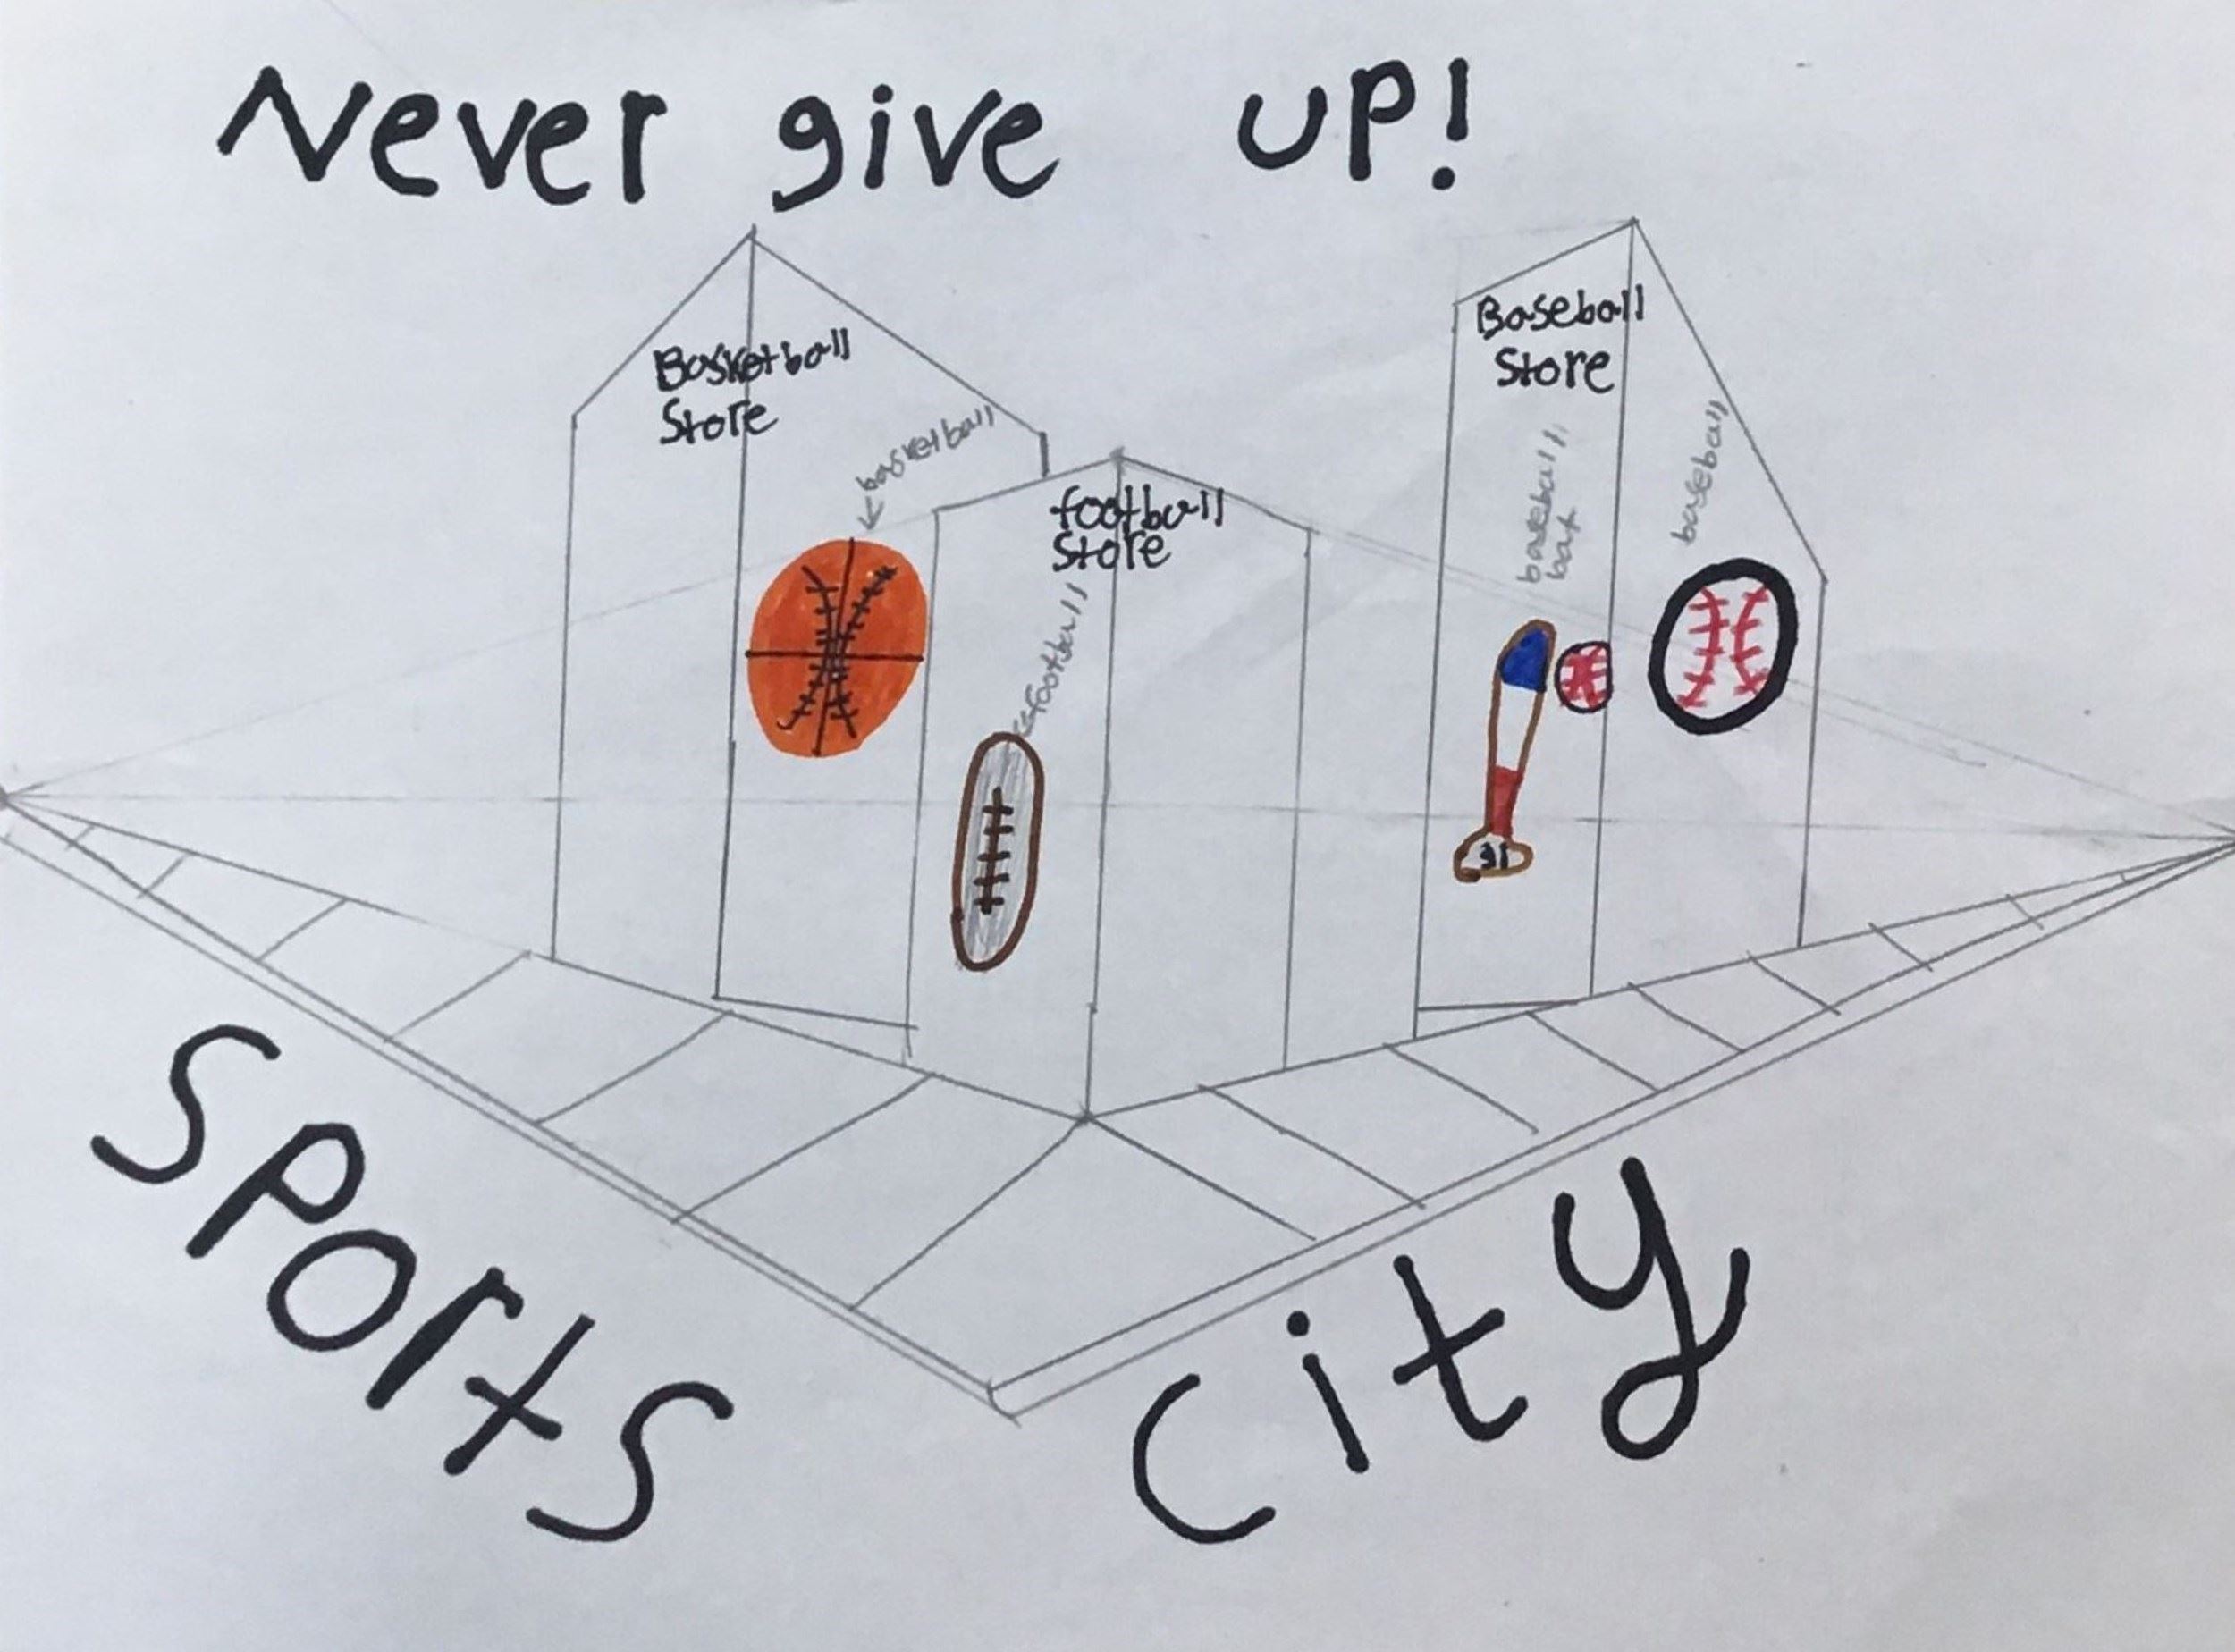 Never give up!
Basketball
Store
basketball
football
Store
football
Baseball
Store
baseball
bat
baseball
31
Sports
City